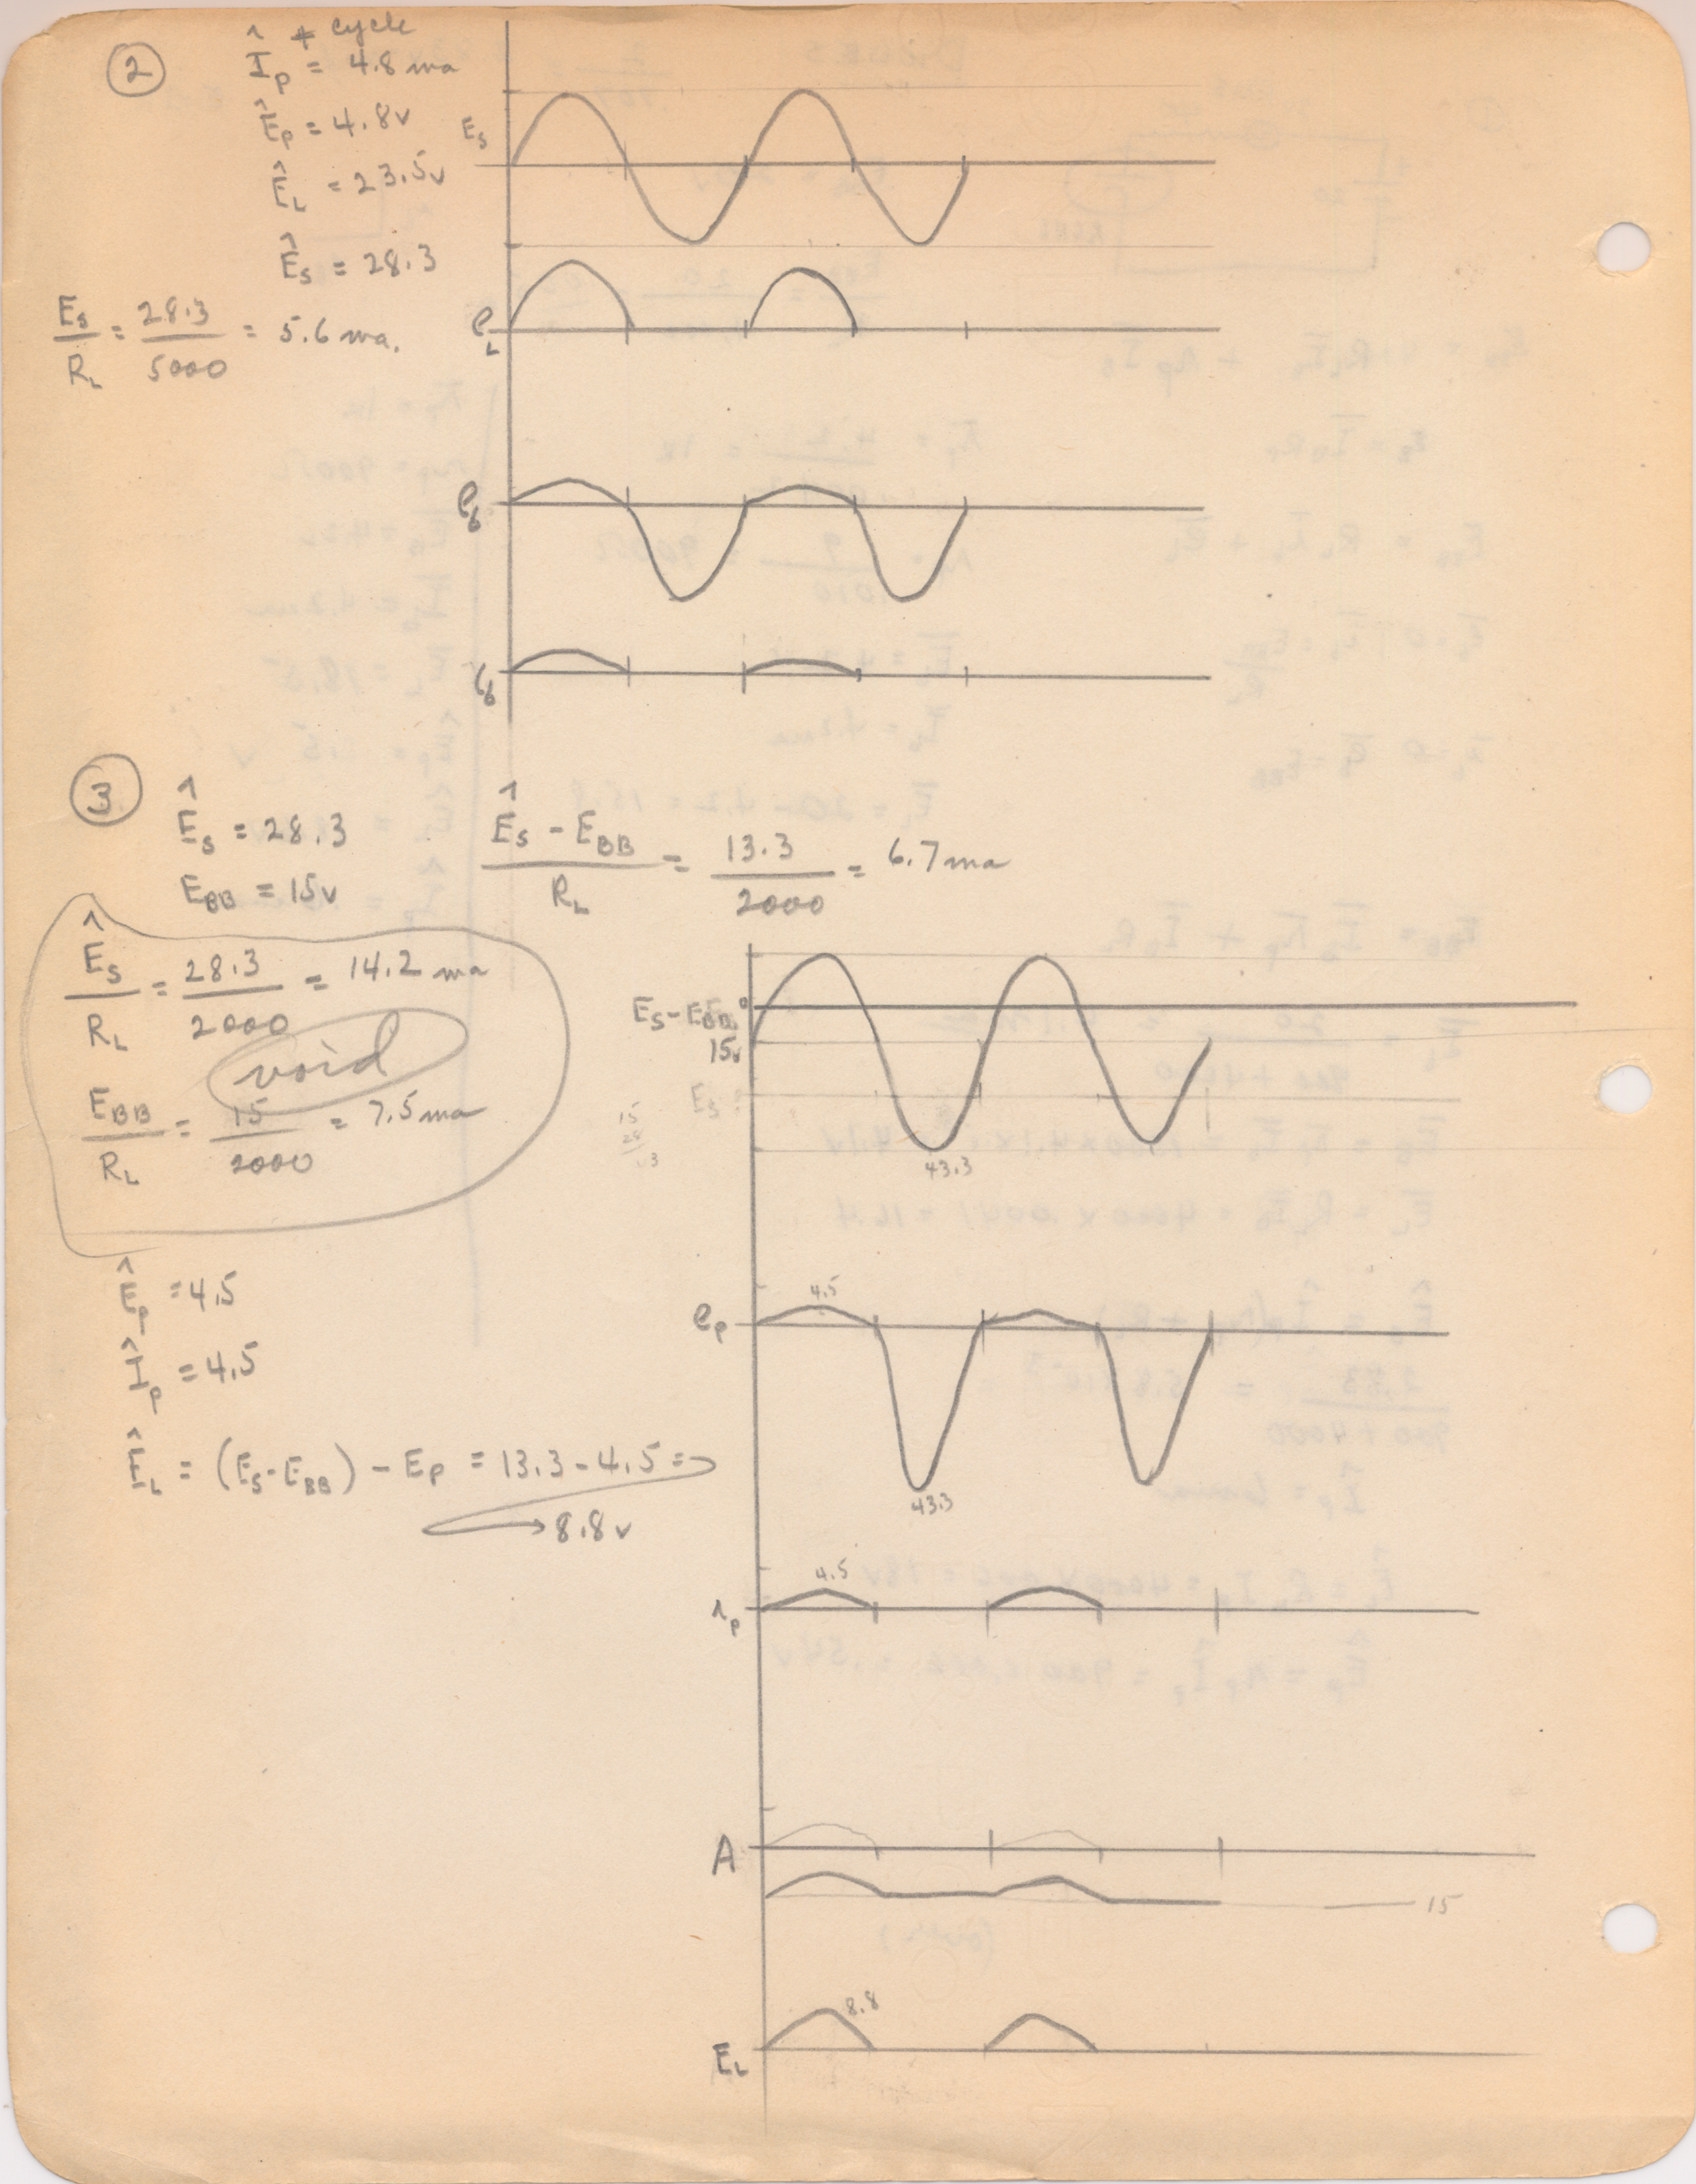 ②
+ cycle
Î_p = 4.8 ma
Ê_p = 4.8v
Ê_L = 23.5v
Ê_s = 28.3
E_s/R_L = 28.3/5000 = 5.6 ma.
E_s
e_L
e_b
i_b
③
Ê_s = 28.3
E_BB = 15v
(Ê_s - E_BB)/R_L = 13.3/2000 = 6.7 ma
Ê_s/R_L = 28.3/2000 = 14.2 ma
void
E_BB/R_L = 15/2000 = 7.5 ma
Ê_p = 4.5
Î_p = 4.5
Ê_L = (E_s - E_BB) - E_p = 13.3 - 4.5 =
8.8 v
E_s - E_BB
0
15v
43.3
e_p
4.5
43.3
i_p
4.5
A
15
E_L
8.8